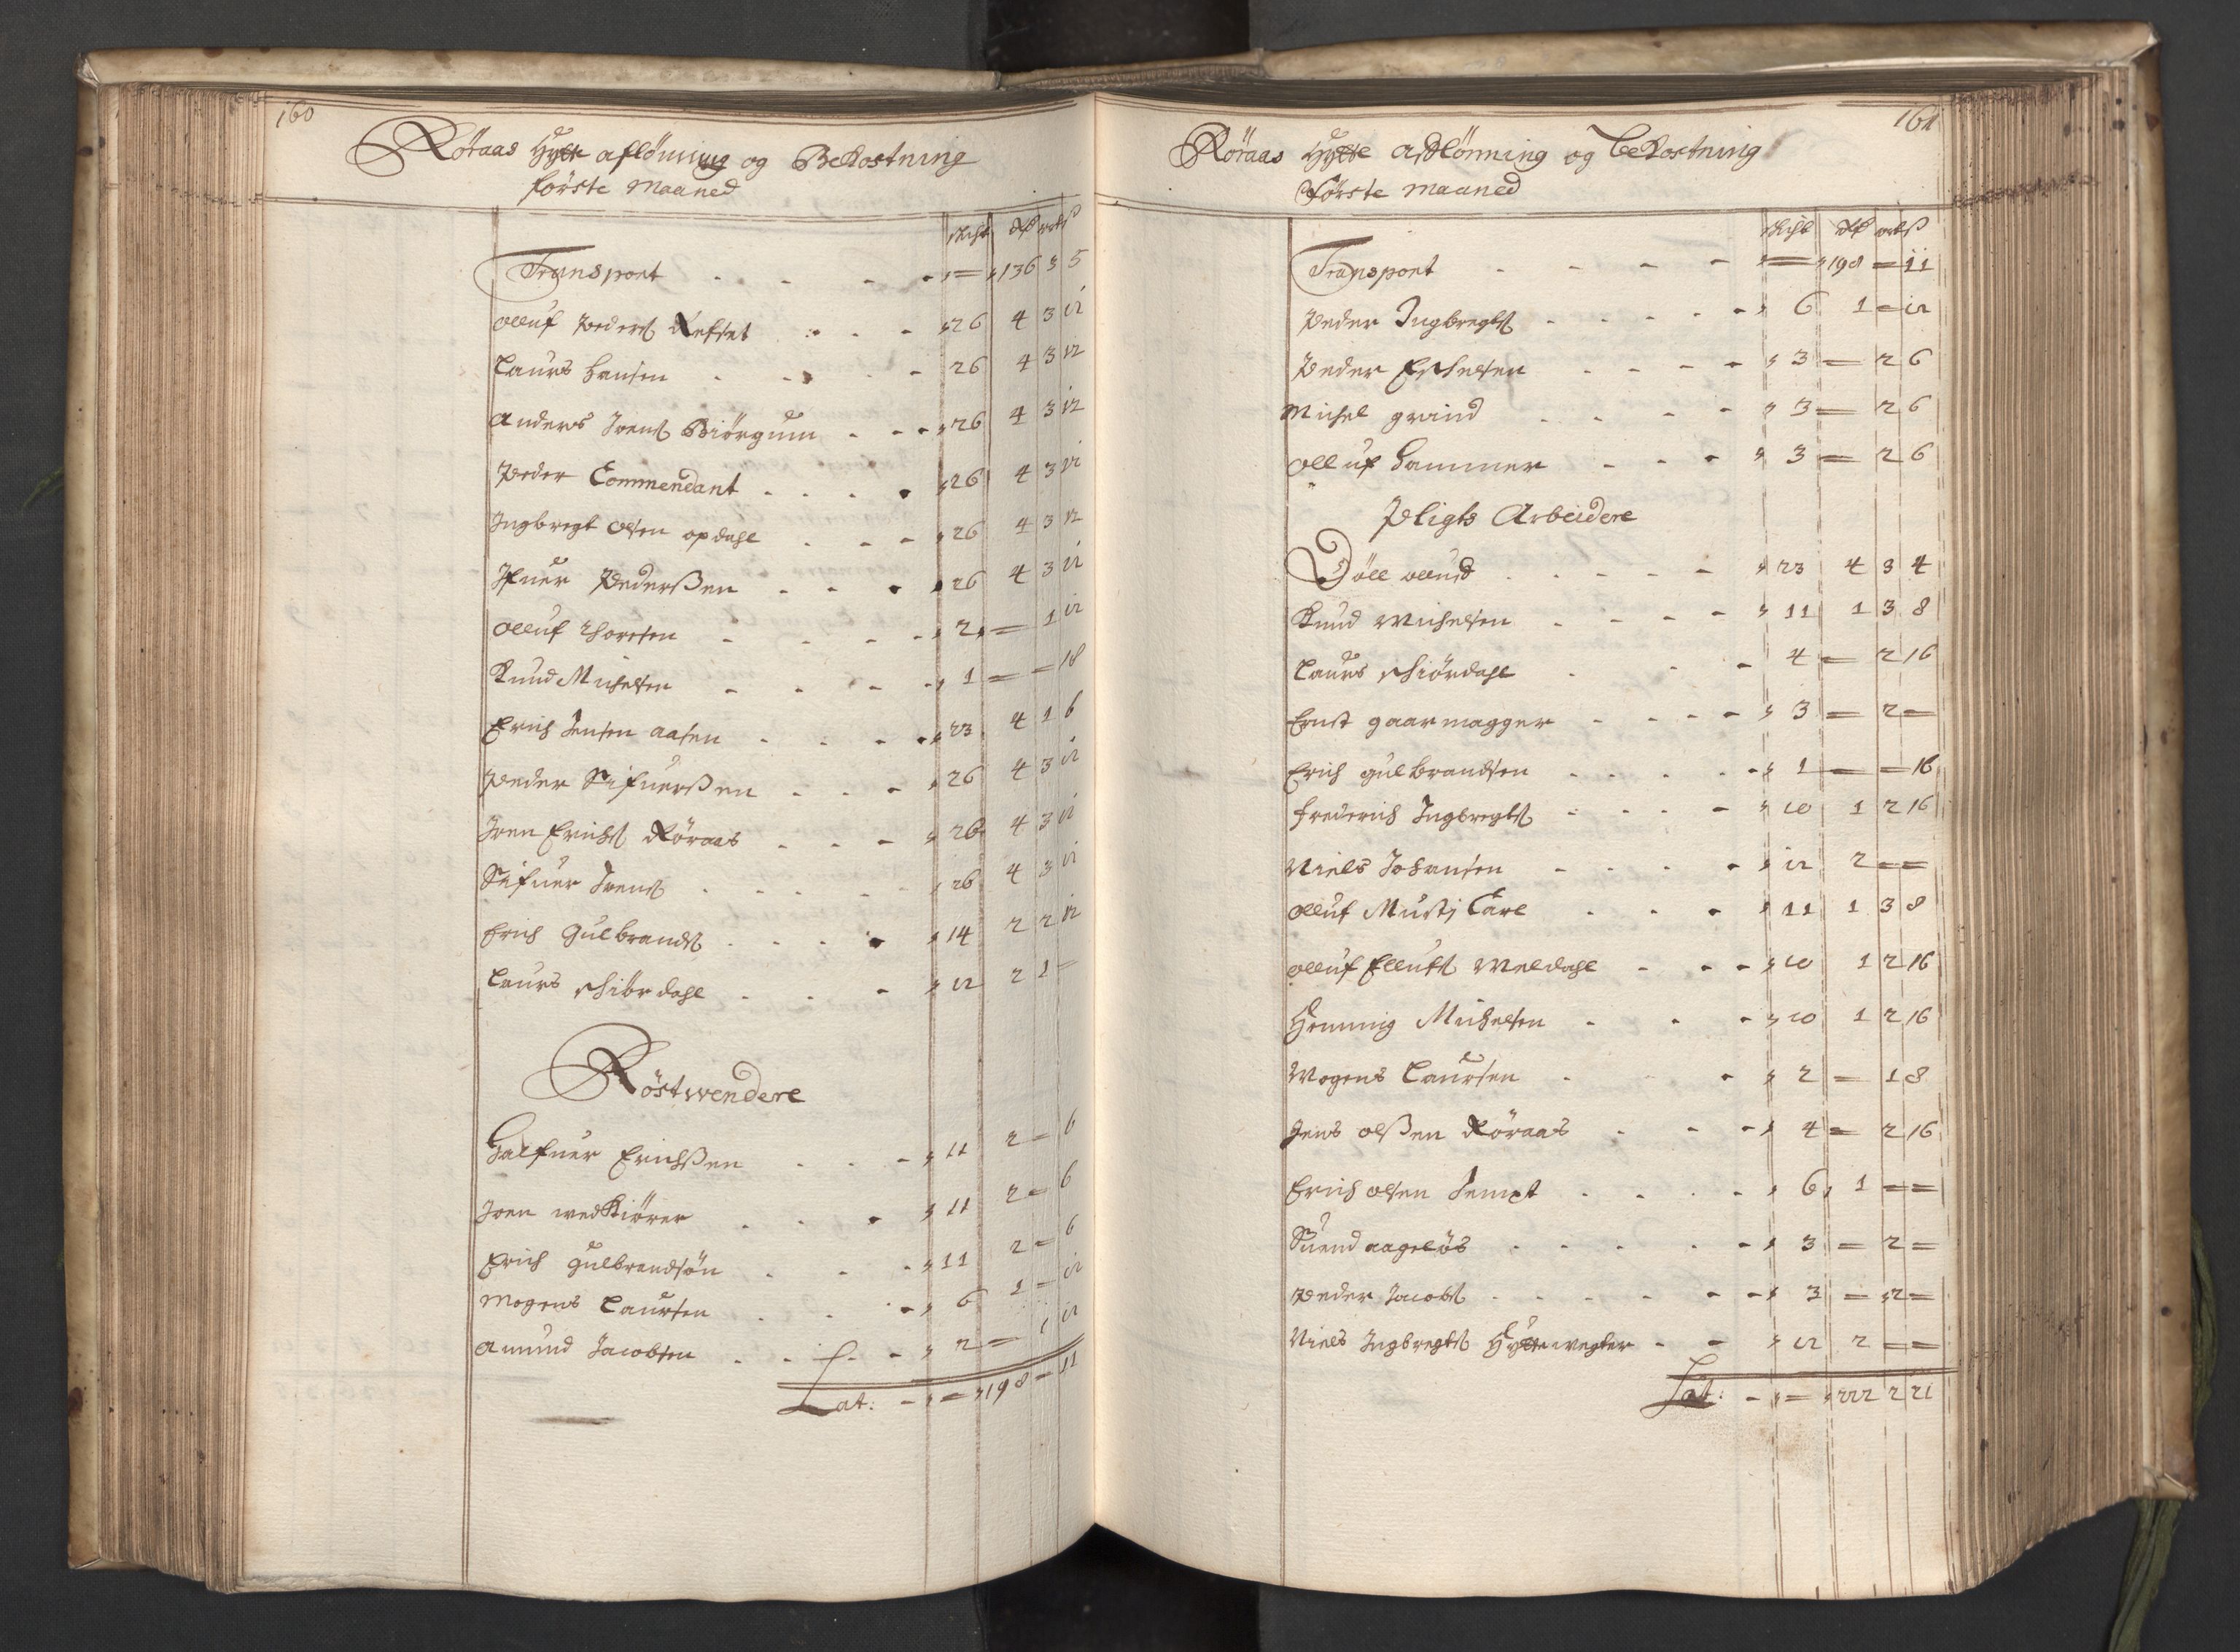 160
Röraas Hytte aflönning og Bekostning
förste Maaned
Skcht Rdr ort ß
Transport - - - - = 136 3 5
Olluf Peders Refset - - - 26 4 3 12
Laurs Hansen - - - - 26 4 3 12
Anders Joens Biörgum - - - 26 4 3 12
Peder Commendant - - - - 26 4 3 12
Ingbregt Olsen opdahl - - - 26 4 3 12
Ifuer Pederßen - - - 26 4 3 12
Olluf Thoresen - - - - 2 = 1 12
Knud Michelsen - - - - 1 = = 18
Erich Jensen aasen - - - - 23 4 1 6
Peder Sifuerßen - - - 26 4 3 12
Joen Erichs Röraas - - - 26 4 3 12
Sifuer Joens - - - - 26 4 3 12
Erich Gulbrands - - - - 14 2 2 12
Laurs Schiördahl - - - 12 2 1 =
Röstwendere
Halfuer Erichßen - - - 11 2 = 6
Joen wedKiörer - - - 11 2 = 6
Erich Gulbrandsön - - - 11 2 = 6
Mogens Laursen - - - 6 1 = 12
Amund Jacobsen - - - - 2 = 1 12
Lat: - = 198 = 11
161
Röraas Hytte Aflönning og Bekostning
Förste Maaned
Skcht Rdr ort ß
Transport - - - - = 198 = 11
Peder Ingbregts - - - - - 6 1 = 12
Peder Erichsen - - - - 3 = 2 6
Michel grind - - - - 3 = 2 6
Olluf Hammer - - - 3 = 2 6
Pligts Arbeidere
Döll Olluf - - - - - 23 4 3 4
Knud Michelsen - - - - 11 1 3 8
Laurs Schiördahl - - - 4 = 2 16
Ernst gaarmagger - - - - 3 = 2 =
Erich gulbrandsen - - - - - 1 = = 16
Frederich Ingbregts - - - - 10 1 2 16
Niels Johansen - - - - 12 2 = =
Olluf Musti Carl - - - 11 1 3 8
Olluf Ellufs Meldahl - - - 10 1 2 16
Henning Michelsen - - - 10 1 2 16
Mogens Laursen - - - 2 = 1 8
Jens Olßen Röraas - - - 4 = 2 16
Erich Olsen Tempt - - - - 6 1 = =
Suend aageløs - - - - - 3 = 2 =
Peder Jacobs - - - - - - 3 = 2 =
Niels Ingbregts Hyttewegter - - 12 2 = =
Lat: - = 222 2 21